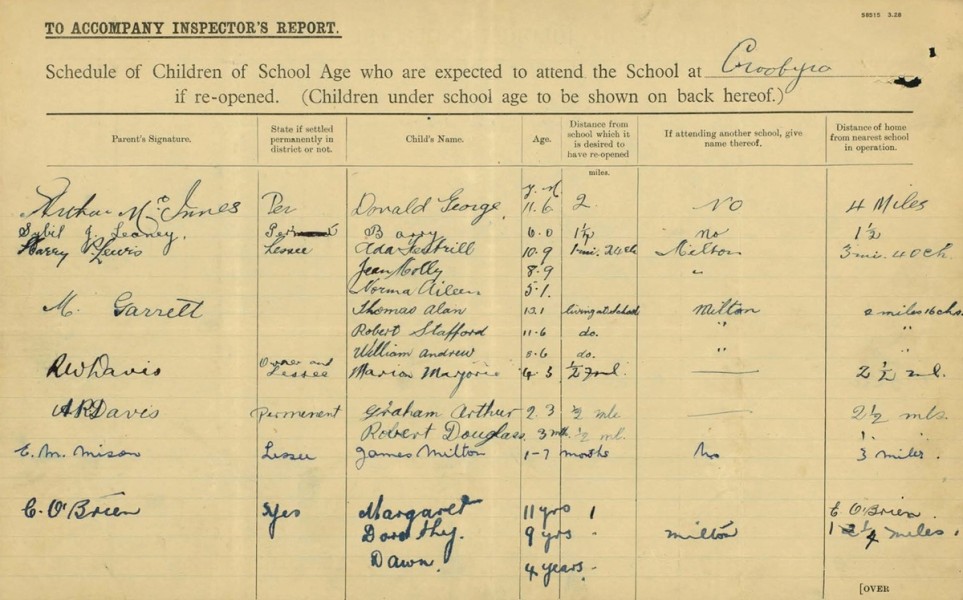 58515 3.28
TO ACCOMPANY INSPECTOR'S REPORT.
1
Schedule of Children of School Age who are expected to attend the School at Croobyra
if re-opened. (Children under school age to be shown on back hereof.)
Parent's Signature. State if settled permanently in district or not. Child's Name. Age. Distance from school which it is desired to have re-opened miles. If attending another school, give name thereof. Distance of home from nearest school in operation.
Y. M.
Arthur McInnes Per Donald George 11.6 2 No 4 Miles
Sybil J. Leaney. Barry 6.0 1½ No 1½
Harry P. Lewis Lessee Ada 10.9 1 mi. Milton 3 mi. 40 ch.
Jean Molly 8.9 "
Norma Aileen 5.1.
M. Garrett Thomas Alan 13.1 living at school Milton 2 miles 16 chs.
Robert Stafford 11.6 do. " "
William Andrew 8.6 do. " "
RW Davis Owner and Lessee Marion Marjorie 4.3 ½ ml. — 2½ ml.
AR Davis Permenent Graham Arthur 2.3 ½ mle — 2½ mls.
Robert Douglass. 3 mth. ½ ml.
E. M. Mison Lessee James Milton 1-7 months No 3 miles.
C. O'Brien Yes Margaret 11 yrs 1 C. O'Brien.
Dorothy. 9 yrs. Milton 2¼ miles.
Dawn. 4 years.
[OVER